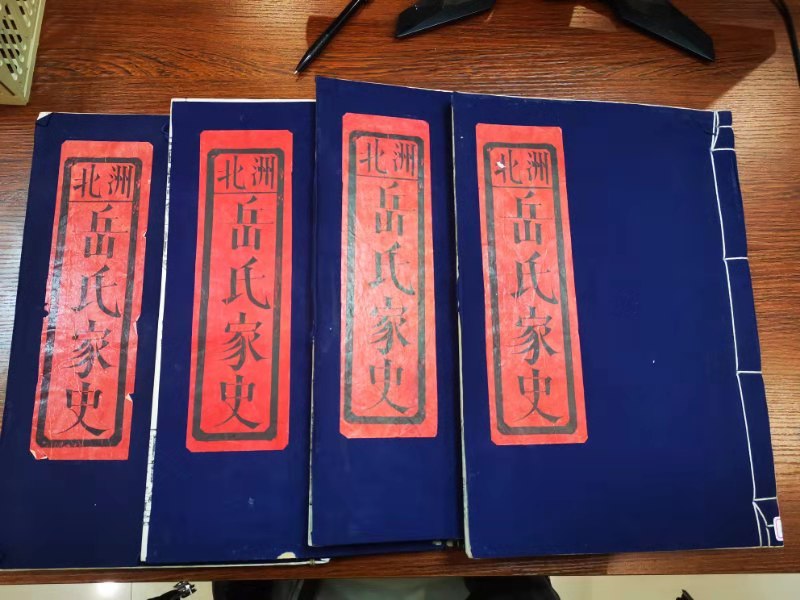 北洲
岳氏家史
北洲
岳氏家史
北洲
岳氏家史
北洲
岳氏家史